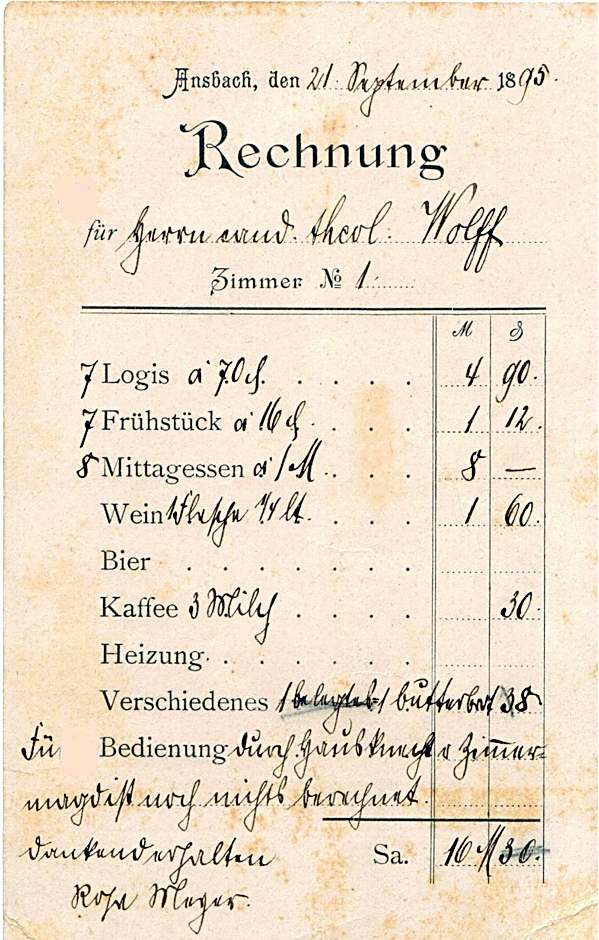 Ansbach, den 21. September 1895.
Rechnung
für Herrn cand. theol. Wolff
Zimmer № 1
M ₰
7 Logis á 70 ₰. 4 90.
7 Frühstück á 16 ₰ 1 12.
8 Mittagessen á 1 M 8 —
Wein 1 Flasche 1/4 lt. 1 60.
Bier
Kaffee 3 Milch 30.
Heizung
Verschiedenes 1 belegtes 1 Butterbrot 38
Fü Bedienung durch Hausknecht u Zimmer-
magd ist noch nichts berechnet.
dankend erhalten Sa. 16 M 30.
Meyer.